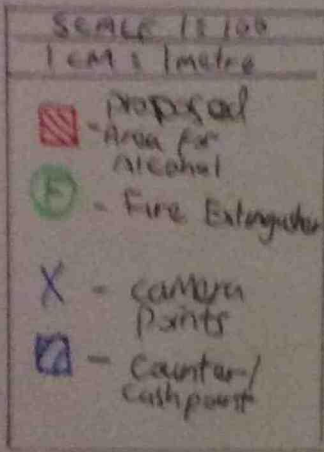 SCALE 1:100
1 CM : 1metre
proposed
- Area for
Alcohol
F - Fire Extinguisher
X - camera
points
- counter/
cashpoint